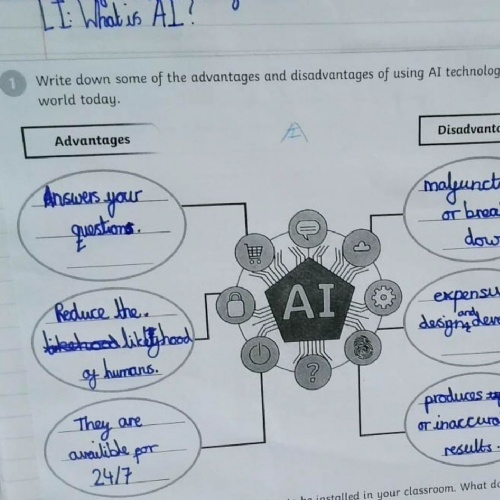 LI: What is AI?
1 Write down some of the advantages and disadvantages of using AI technolog
world today.
Advantages
Disadvanta
Answers your
questions.
Reduce the.
likelihood
of humans.
They are
availible for
24/7
AI
?
malfunct
or brea
dow
expensi
and
design develo
produces
or inaccura
results.
be installed in your classroom. What do